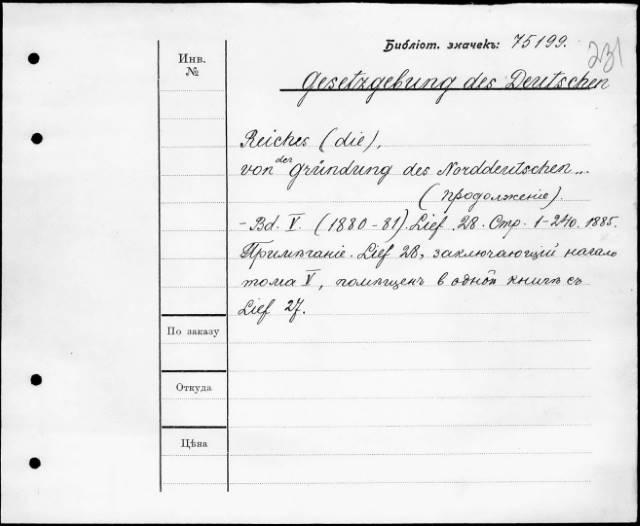 Библіот. значекъ: 75199.
231
Инв.
№
Gesetzgebung des Deutschen
Reiches (die),
von der Gründung des Norddeutschen...
(продолженіе).
- Bd. V. (1880-81). Lief. 28. Стр. 1-240. 1885.
Примѣчаніе. Lief 28, заключающій начало
тома V, помѣщенъ в одной книгѣ съ
Lief 27.
По заказу
Откуда
Цѣна